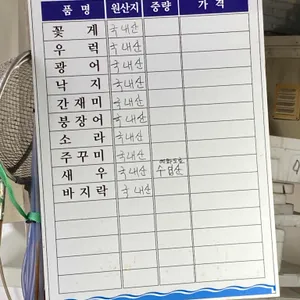 품 명 원산지 중량 가 격
꽃 게 국내산
우 럭 국내산
광 어 국내산
낙 지 국내산
간 재 미 국내산
붕 장 어 국내산
소 라 국내산
주 꾸 미 국내산
새 우 국내산 수입산
바 지 락 국내산